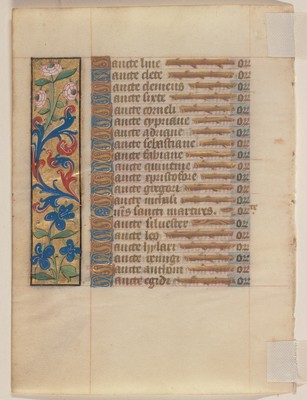 Sancte line or
Sancte clete or
Sancte clemens or
Sancte sixte or
Sancte corneli or
Sancte cypriane or
Sancte adriane or
Sancte sebastiane or
Sancte fabiane or
Sancte quintine or
Sancte gregori or
Sancte or
Om̅s sancti martires. or
Sancte silvester or
Sancte leo or
Sancte hylari or
Sancte or
Sancte anthoni or
Sancte egidi or